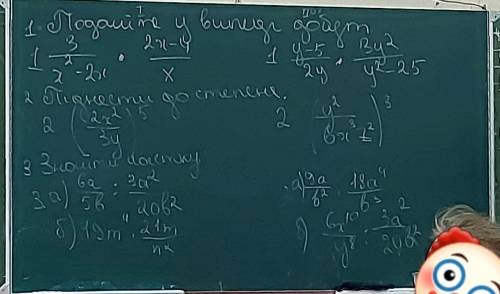 1. Подайте у вигляді добут
1 3/(x² - 2x) · (2x - 4)/x    1 (y - 5)/(2y) · 3y²/(y² - 25)
2 Піднести до степеня.
2 (2x²/3y)⁵    2 (y²/(6x³z²))³
3 Знайти частку
3 а) 6a/5b : 3a²/20b²    а) 9a/b² : 18a⁴/b³
б) 19m⁴ · 21m/n²    ) 6x¹⁰/y⁸ : 3a²/20b²